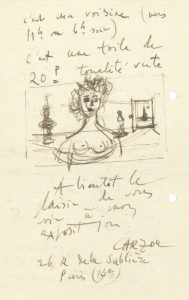 c'est ma voisine (vers
11h ou 6h soir)
c'est une toile de
20 P tonalité verte
A bientôt le
plaisir de vous
voir à mon
exposition
CARZOU
26, R de la Sablière
Paris (14e)